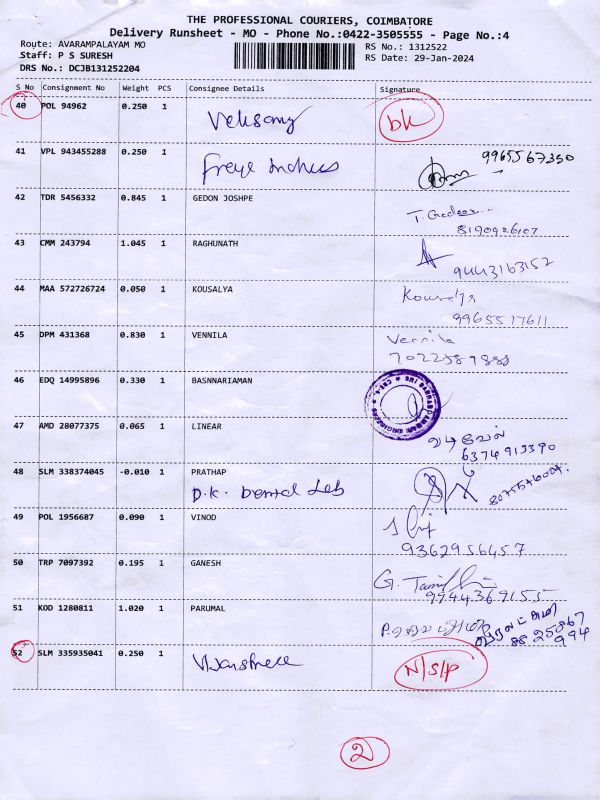 THE PROFESSIONAL COURIERS, COIMBATORE
Delivery Runsheet - MO - Phone No.:0422-3505555 - Page No.:4
Route: AVARAMPALAYAM MO
RS No.: 1312522
Staff: P S SURESH
RS Date: 29-Jan-2024
DRS No.: DCJB131252204
S No Consignment No Weight PCS Consignee Details Signature
40 POL 94962 0.250 1 bk
41 VPL 943455288 0.250 1 9965567350
42 TDR 5456332 0.845 1 GEDON JOSHPE
8190926107
43 CMM 243794 1.045 1 RAGHUNATH
9443163152
44 MAA 572726724 0.050 1 KOUSALYA Kousalya
9965517611
45 DPM 431368 0.830 1 VENNILA Vennila
46 EDQ 14995896 0.330 1 BASNNARIAMAN
47 AMD 28077375 0.065 1 LINEAR வடிவேல்
6374913390
48 SLM 338374045 -0.010 1 PRATHAP
D.K. Dental Lab
49 POL 1956687 0.090 1 VINOD
9362956457
50 TRP 7097392 0.195 1 GANESH G. Tamil
9944369155
51 KOD 1280811 1.020 1 PARUMAL
8825867
994
52 SLM 335935041 0.250 1 N/S/P
2